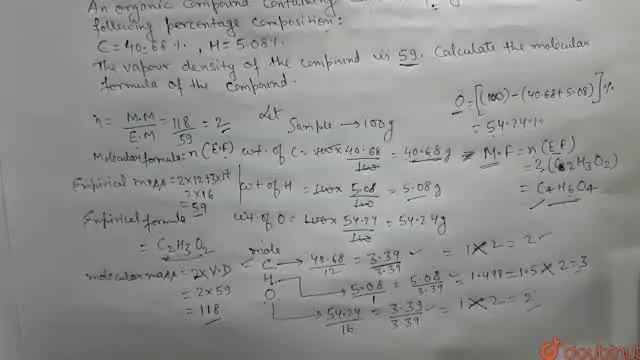 An organic compound containing
following percentage composition:
C = 40.68%, H = 5.08%.
The vapour density of the compound is 59. Calculate the molecular
formula of the compound.
O = [(100) - (40.68 + 5.08)] %
= 54.24%
n = M.M/E.M = 118/59 = 2
Let
Sample → 100g
Molecular formula = n(E.F)
wt. of C = 100 × 40.68/100 = 40.68g
M.F = n(E.F)
= 2(C2H3O2)
= C4H6O4
Empirical mass = 2×12+3×1+
2×16
= 59
wt of H = 100 × 5.08/100 = 5.08g
Empirical formula
= C2H3O2
wt. of O = 100 × 54.24/100 = 54.24g
mole
C → 40.68/12 = 3.39/3.39 = 1 × 2 = 2
H → 5.08/1 = 5.08/3.39 = 1.498 = 1.5 × 2 = 3
O → 54.24/16 = 3.39/3.39 = 1 × 2 = 2
molecular mass = 2 × V.D
= 2 × 59
= 118
doubtnut